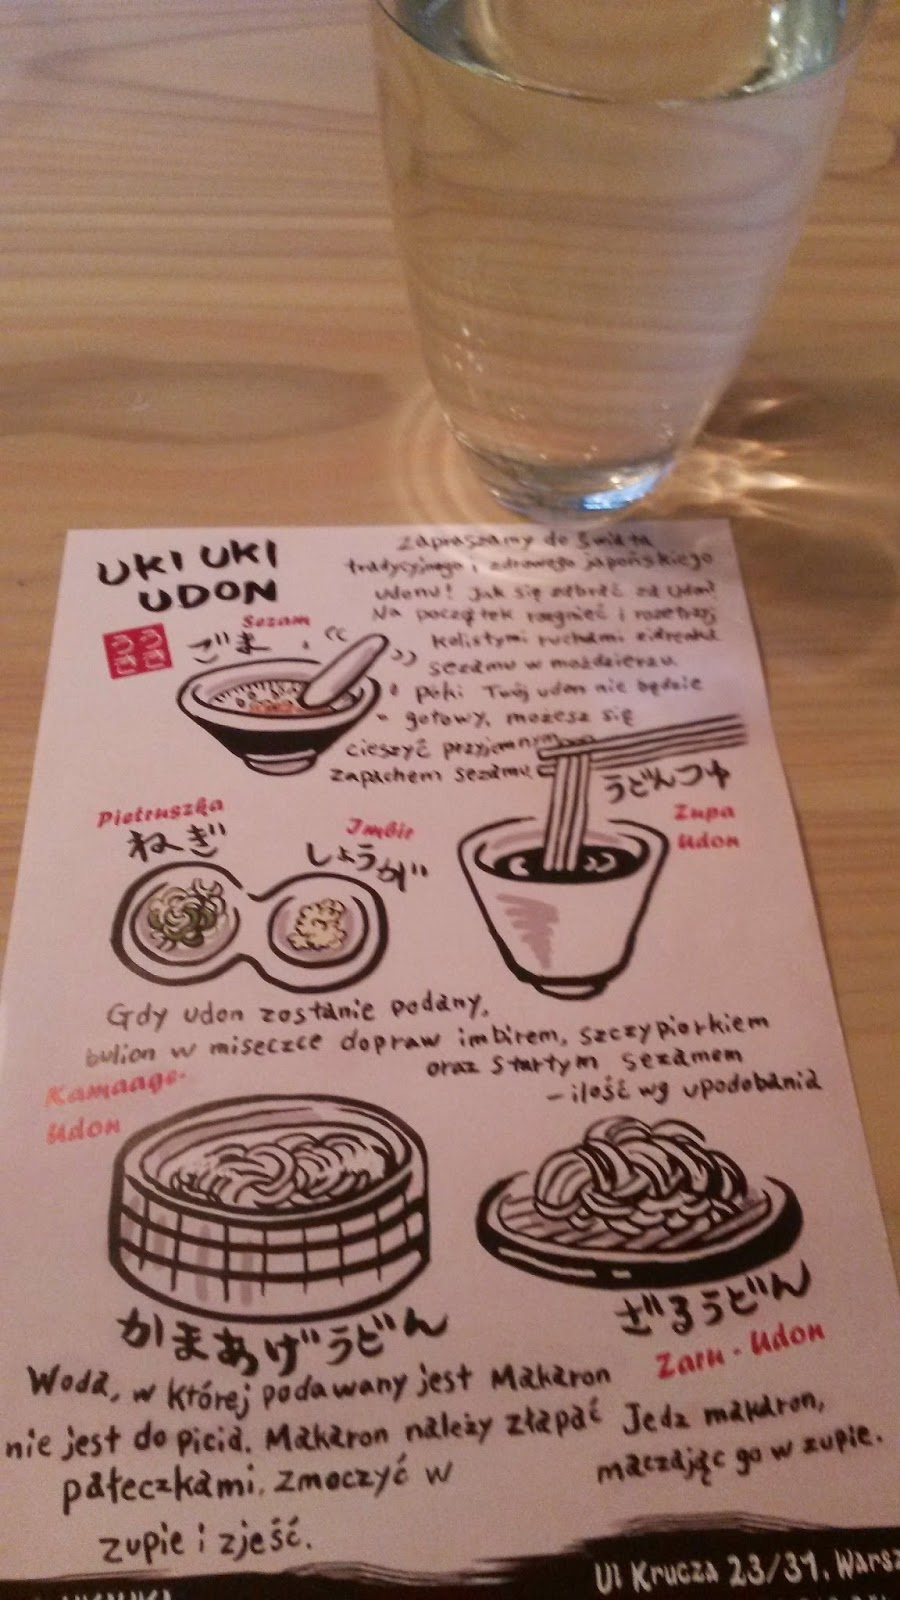 UKI UKI
UDON
うき
うき
Zapraszamy do świata
tradycyjnego i zdrowego japońskiego
udonu! Jak się
Na początek rozgnieć i rozetrzyj
kolistymi ruchami ziarenka
sezamu w moździerzu.
póki Twój udon nie będzie
gotowy, możesz się
cieszyć przyjemnym
zapachem sezamu
Sezam
ごま
Pietruszka
ねぎ
Imbir
しょうが
うどんつゆ
Zupa
Udon
Gdy udon zostanie podany,
bulion w miseczce dopraw imbirem, szczypiorkiem
oraz startym sezamem
– ilość wg upodobania
Kamaage-
Udon
かまあげうどん
ざるうどん
Zaru - Udon
Woda, w której podawany jest Makaron
nie jest do picia. Makaron należy złapać
pałeczkami, zmoczyć w
zupie i zjeść.
Jedz makaron,
maczając go w zupie.
Ul Krucza 23/31, Warsz